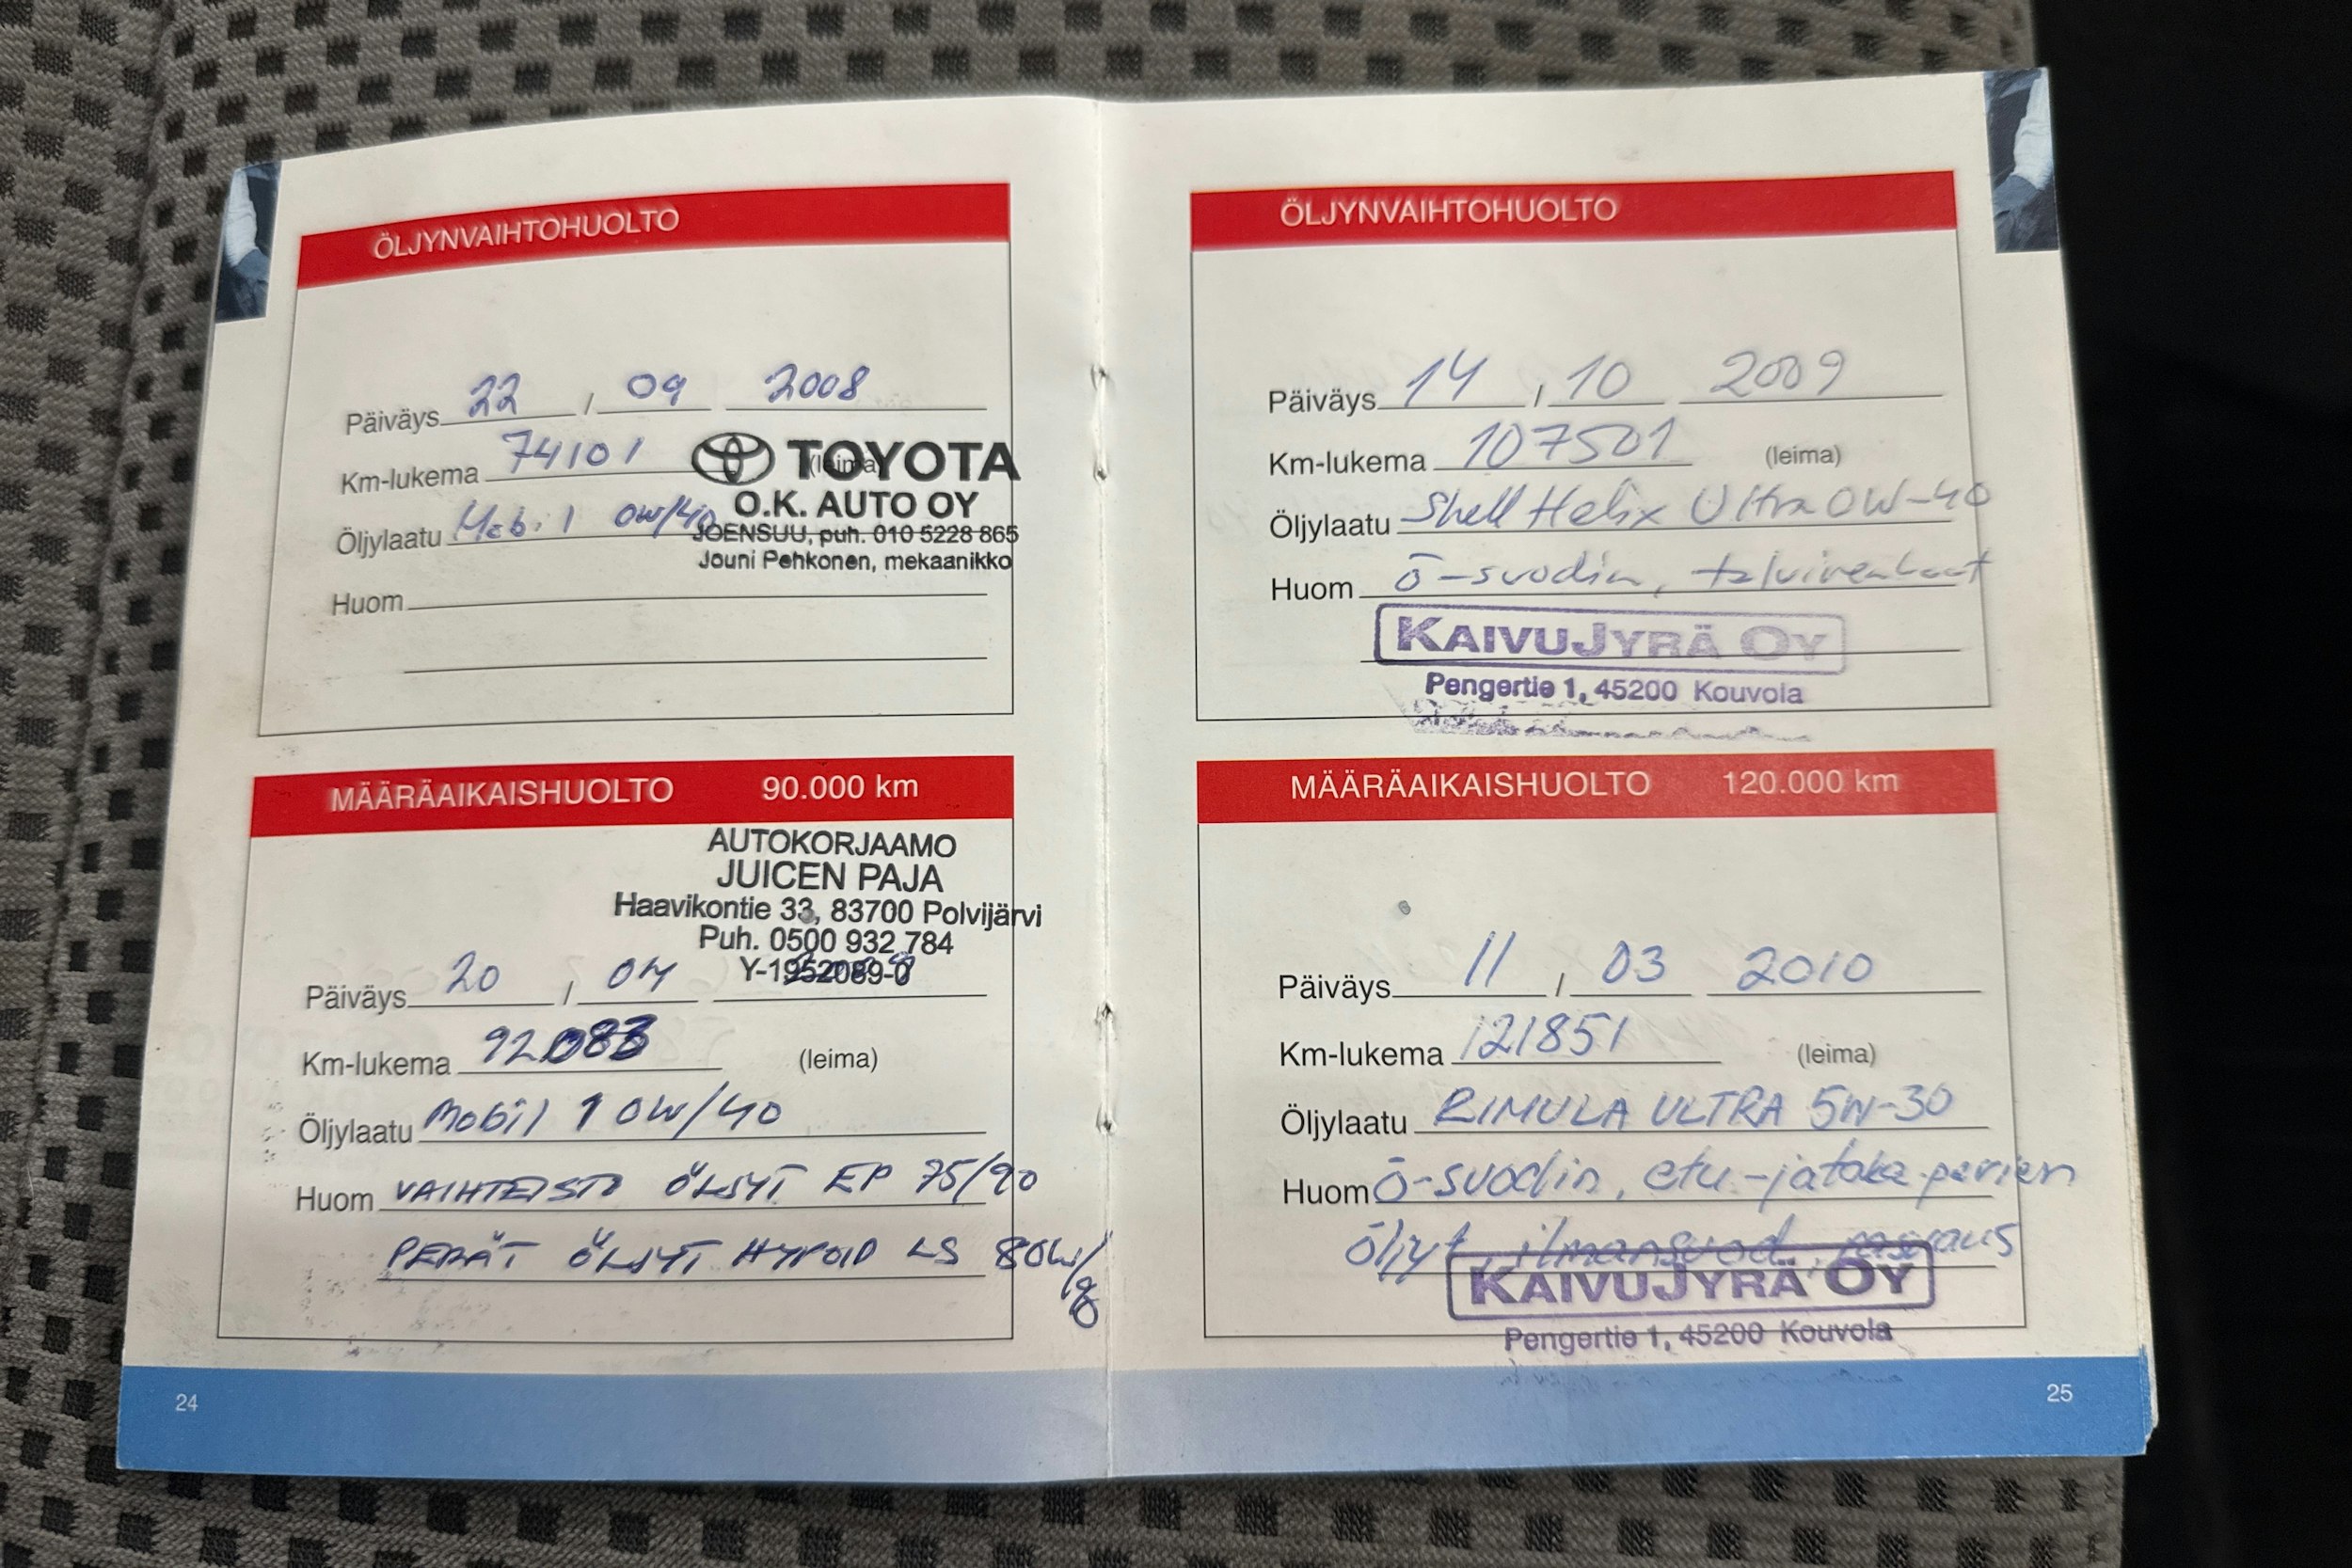 ÖLJYNVAIHTOHUOLTO
Päiväys 22 / 09 2008
Km-lukema 74101 (leima)
TOYOTA
O.K. AUTO OY
JOENSUU, puh. 010 5228 865
Jouni Pehkonen, mekaanikko
Öljylaatu Mobil 0W/40
Huom
MÄÄRÄAIKAISHUOLTO 90.000 km
AUTOKORJAAMO
JUICEN PAJA
Haavikontie 33, 83700 Polvijärvi
Puh. 0500 932 784
Y-1952089-0
Päiväys 20 / 04
Km-lukema 92083 (leima)
Öljylaatu Mobil 1 0W/40
Huom VAIHTEISTO ÖLJYT EP 75/90
PERÄT ÖLJYT HYPOID LS 80W/90
24
ÖLJYNVAIHTOHUOLTO
Päiväys 14 / 10 2009
Km-lukema 107501 (leima)
Öljylaatu Shell Helix Ultra 0W-40
Huom ö-suodin, talvirenkaat
KAIVUJYRÄ OY
Pengertie 1, 45200 Kouvola
MÄÄRÄAIKAISHUOLTO 120.000 km
Päiväys 11 / 03 2010
Km-lukema 121851 (leima)
Öljylaatu RIMULA ULTRA 5W-30
Huom ö-suodin, etu-ja taka perien
öljyt, ilmansuod.
KAIVUJYRÄ OY
Pengertie 1, 45200 Kouvola
25